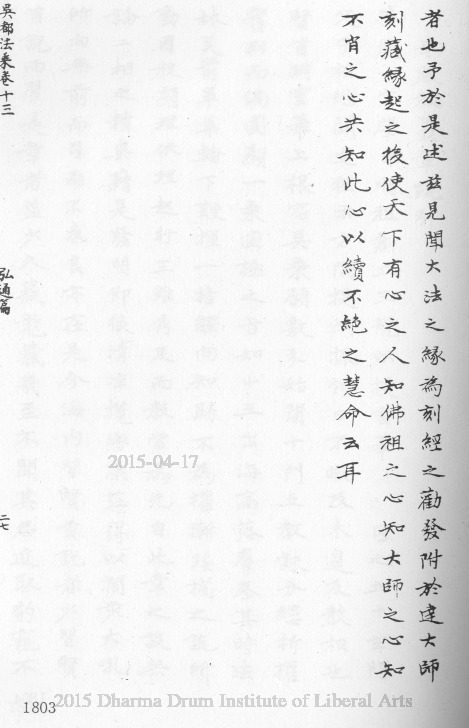 者也予於是述茲見聞大法之緣為刻經之勸發附於達大師
刻藏緣起之後使天下有心之人知佛祖之心知大師之心知
不肖之心共知此心以續不絕之慧命云耳
吳都法乘卷十三
弘通篇
二七
2015-04-17
1803
2015 Dharma Drum Institute of Liberal Arts